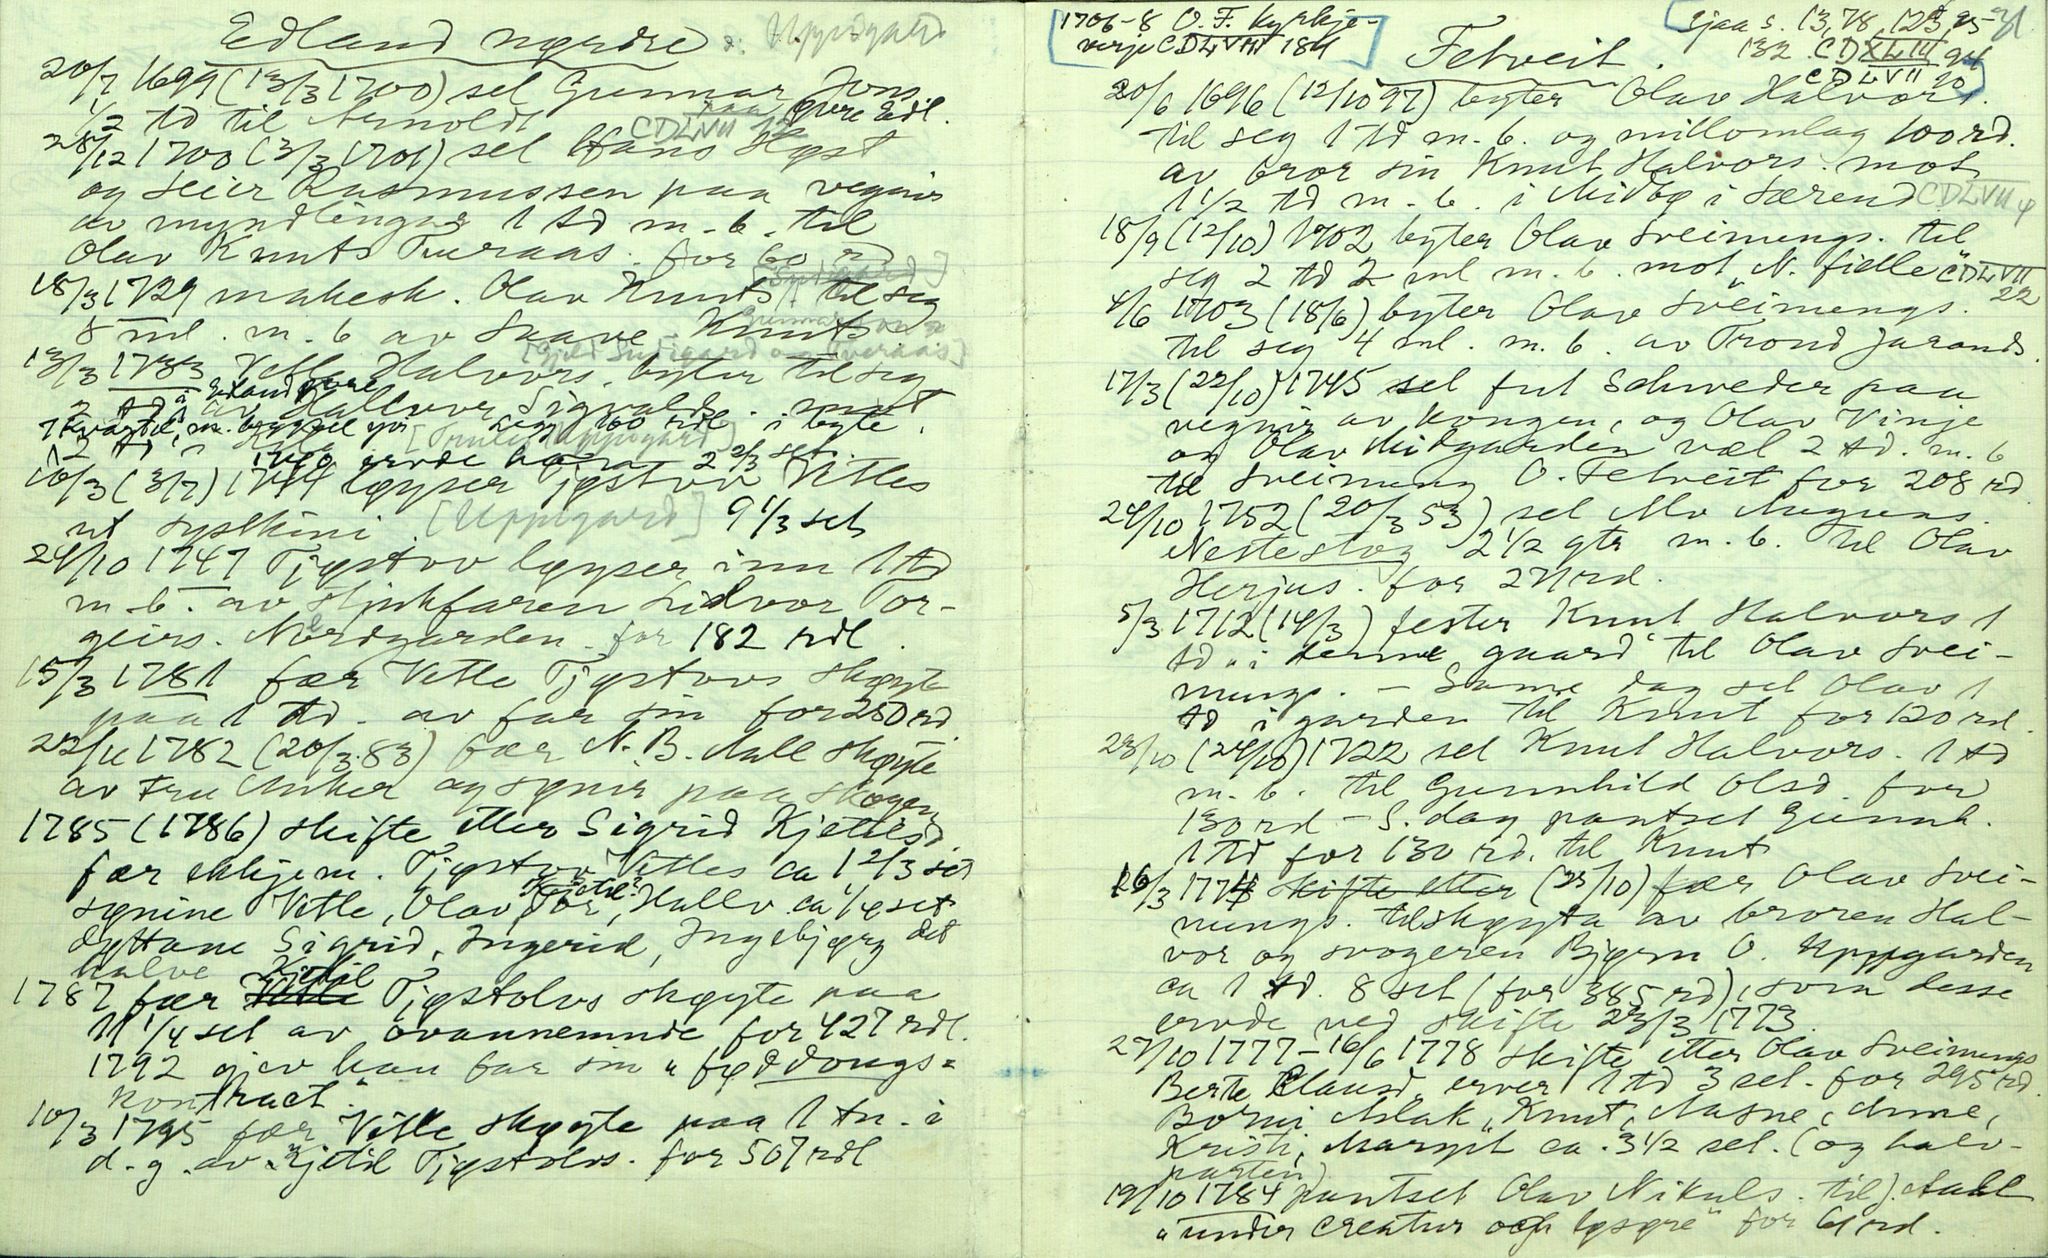 Edland nørdre a: Uppigard
20/7 1699 (13/3 1700) sel Gunnar Jons.
1/2 td til Arnoldt paa øvre Edl.
CDLVII 12
28/12 1700 (3/3 1701) sel Hans Høst
og Seier Rasmussen paa vegnir
av myndlingar 1 td m. b. til
Olav Knuts Tveraas. for 60 rd
18/3 1729 makesk. Olav Knuts til seg
8 ml. m. b av Saave Knuts
[Gjeld Sudigard og Tveraas]
13/3 1733 Vetle Halvors. byter til seg
2 td i Edland øvre av Hallvor Sigvalds. mot
i byte.
1740 ervde han 2 2/3 set.
16/3 (3/7) 1744 løyser Tjøstov Vetles
ut syskini [Uppigard] 9 1/3 set
24/10 1747 Tjøstov løyser inn 1 td
m. b. av Skjukfaren Lidvor Tor-
geirs. Nordgarden for 182 rdl.
15/3 1781 fær Vetle Tjøstovs skøyte
paa 1 td. av far sin for 250 rd
22/11 1782 (20/3 83) fær N. B. Aall skøyte
av Fru Anker og syner paa skogen
1785 (1786) skifte etter Sigrid Kjetilsd.
fær ekkjem. Tjøstov Vetles ca 12/3 set
synine Vetle, Olav, Tor, Kjetil?, Hallv. ca 1/4 set
døttane Sigrid, Ingerid, Ingebjørg det
halve
1787 fær Kjetil Tjøstolvs skøyte paa
11 1/4 set av ovannemnde for 427 rdl.
1792 gjev han far sin "føddougs=
kontract".
10/3 1795 fær Vetle skøyte paa 1 tn. i
d. g. av Kjetil Tjøstolvs. for 507 rdl
1706-8 O. F. kyrkje-
verje CDLVIII 184
Sjaa s. 13, 78, 123, 95- 31
132 CDXLIII 94
CDLVII 20
Fetveit.
20/6 1696 (12/10 97) byter Olav Halvors.
til seg 1 td m. b. og millomlag 100 rd.
av bror sin Knut Halvors. mot
1 1/2 td m. b. i Midbø i Særend CDLVII φ
18/9 (12/10) 1702 byter Olav Sveinungs. til
seg 2 td 2 ml m. b. mot N. Fielle" CDLVII
22
4/6 1703 (18/6) byter Olav Sveinungs.
til seg 4 ml. m. b. av Trond Jarands.
17/3 (22/10) 1745 sel fut Schweder paa
vegnir av kongen, og Olav Vinje
og Olav Midgarden væl 2 td. m. b
til Sveinung O. Fetveit for 208 rd.
24/10 1752 (20/3 53) sel Mv Mogens.
Nestestog 2 1/2 gts m. b. til Olav
Herjus. for 27 rd.
5/3 1712 (14/3) fester Knut Halvors 1
td "i denne gaard" til Olav Svei-
nungs. – Same dag sel Olav 1
td i garden til Knut for 120 rd.
23/10 (24/10) 1722 sel Knut Halvors. 1 td
m. b. til Gunnhild Olsd. for
130 rd – S. dag pantset Gunnh.
1 td for 130 rd. til Knut
26/3 1774 skifte etter (25/10) fær Olav Svei-
nungs. tilskøyta av broren Hal-
vor og svogeren Bjørn O. Uppgarden
ca 1 td. 8 set (for 385 rd), som desse
ervde ved skifte 23/3 1773.
27/10 1777 – 16/6 1778 skifte etter Olav Sveinungs
Berte Clausd. erver 1 td 3 set. for 295 rd.
Borni Aslak, Knut, Aasne, Anne,
Kristi, Margit ca. 3 1/2 set. (og halv-
parten)
19/10 1784 pantset Olav Nikuls. til J. Aall
"under creatur och løsøre" for 61 rd.